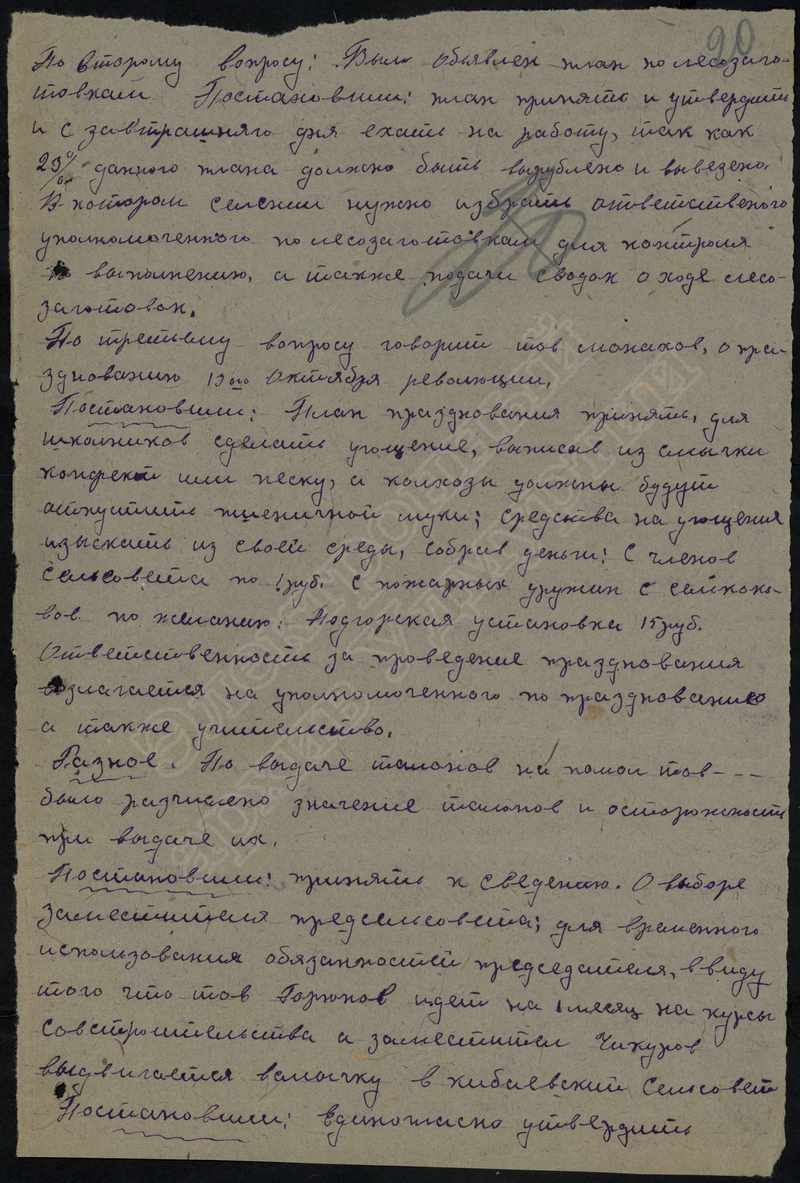 90
По второму вопросу: Было объявлен план по лесозаго-
товкам Постановили: план принять и утвердить
и с завтрашняго дня ехать на работу, так как
данного плана должно быть вырублено и вывезено.
В котором селении нужно избрать ответственого
уполномоченного по лесозаготовкам для контроля
выполнению, а также подачи сводок о ходе лесо-
заготовок.
По третьему вопросу говорит тов Монахов, о пра-
зднованию Октября революции.
Постановили: План празднования принять, для
школников сделать угощение, выписав из смычки
конфект или песку, а колхозы должны будут
отпустить пшеничной муки; средства на угощения
изыскать из своей среды, собрав деньги: С членов
сельсовета по 1 руб. с пожарных дружин с
вов по желанию. Подгорская установка 15 руб.
Ответственность за проведение празднования
возлагается на уполномоченного по празднованию
а также учительство.
Разное. По выдаче талонов на помол тов - - -
было раз'яснено значение талонов и осторожность
при выдаче их.
Постановили: принять к сведению. О выборе
заместителя предсельсовета; для временного
использования обязанностей председателя, ввиду
того что тов Горюнов идет на 1 месяц на курсы
совстроительства а заместител Чикуров
выдвигается всмычку в сельсовет
Постановили: единогласно утвердить